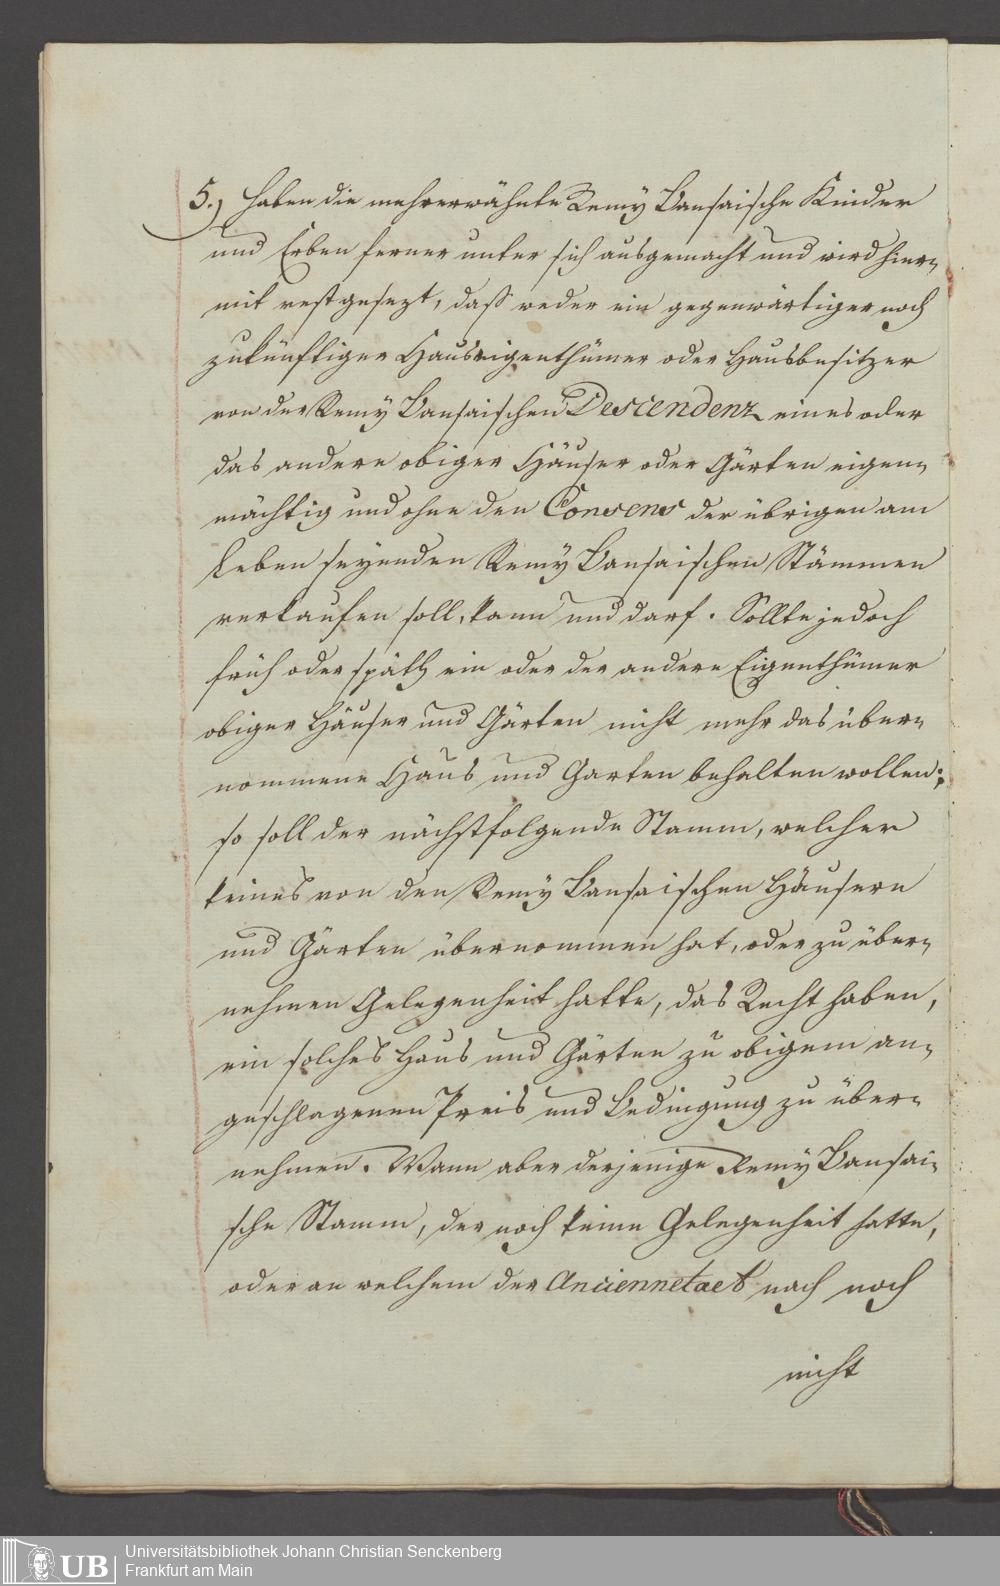 5.) Haben die mehrerwähnte Remy Bansaische Kinder
und Erben ferner unter sich ausgemacht und wird hier-
mit vestgesezt, daß weder ein gegenwärtiger noch
zukünftiger Hauseigenthümer oder Hausbesitzer
von der Remy Bansaischen Descendenz eines oder
das andere obiger Häuser oder Gärten eigen-
mächtig und ohne den Consens der übrigen am
Leben seyenden Remy Bansaischen Stämmen
verkaufen soll, kann und darf. Sollte jedoch
früh oder späth ein oder der andere Eigenthümer
obiger Häuser und Gärten nicht mehr das über-
nommene Haus und Garten behalten wollen;
so soll der nächstfolgende Stamm, welcher
keines von den Remy Bansaischen Häusern
und Gärten übernommen hat, oder zu über-
nehmen Gelegenheit hatte, das Recht haben,
ein solches Haus und Gärten zu obigem an-
geschlagenen Preis und Bedingung zu über-
nehmen. Wann aber derjenige Remy Bansai-
sche Stamm, der noch keine Gelegenheit hatte,
oder an welchem der Anciennetaet nach noch
nicht
UB Universitätsbibliothek Johann Christian Senckenberg
Frankfurt am Main